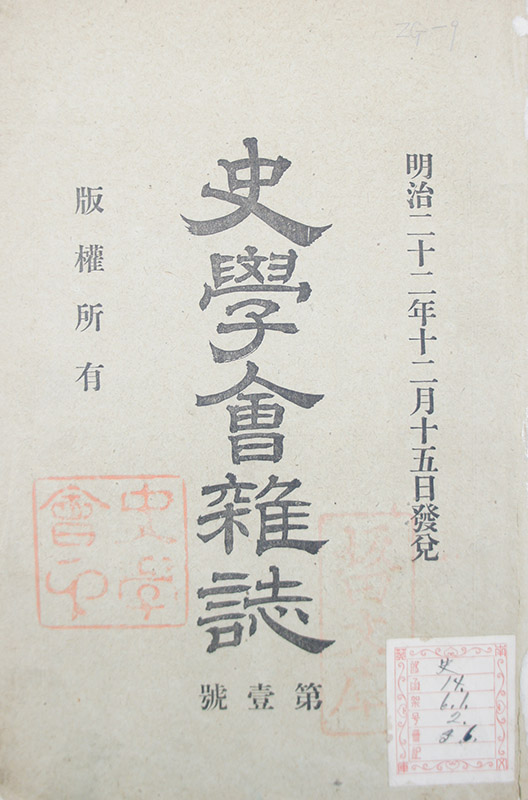 明治二十二年十二月十五日發兌
史學會雜誌
第壹號
版權所有
史學會
史
14.
6.1.
2.
ZG-9